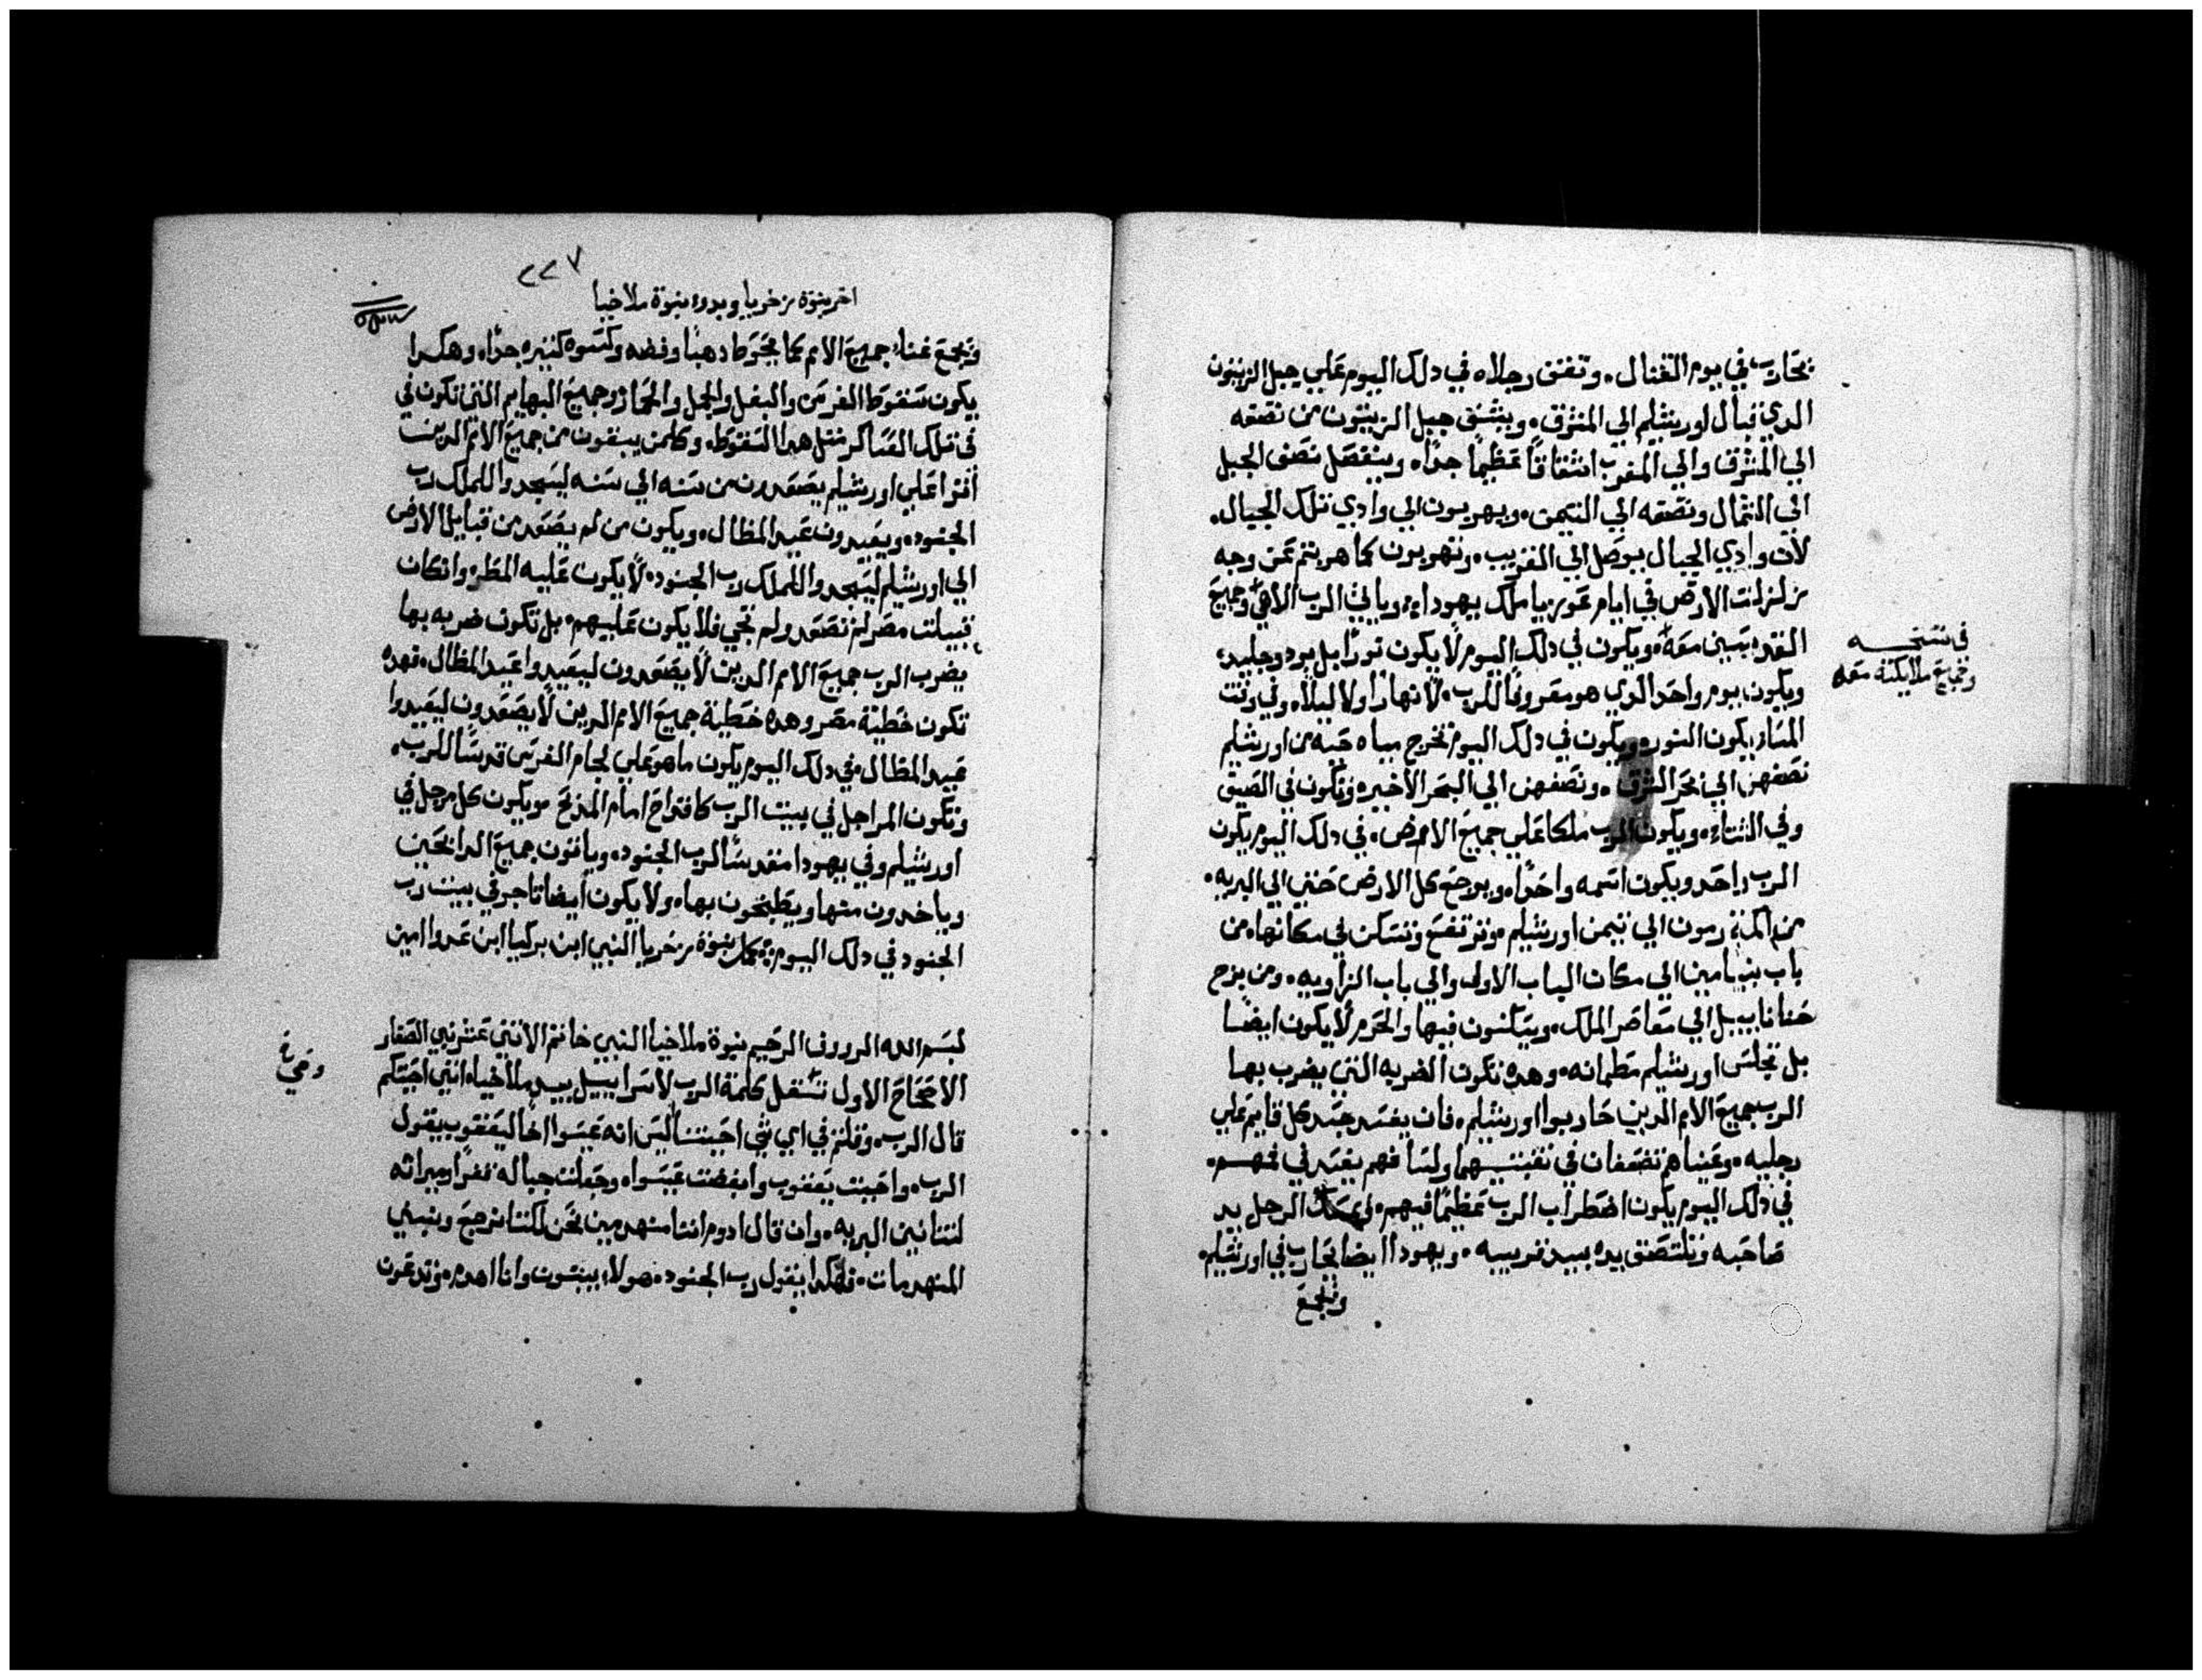 يحارب في يوم القتال. وتقف رجلاه في دلك اليوم علي جبل الزيتون
الدي قبال اورشليم الي المشرق. وينشق جبل الزيتون من نصفه
الي المشرق والي المغرب انشقاقاً عظيماً جداً. وينفصل نصف الجبل
الي الشمال ونصفه الي التيمن. ويهربون الي وادي تلك الجبال.
لان وادي الجبال يوصل الي القريب. وتهربون كما هربتم عن وجه
زلزلت الارض في ايام عوزيا ملك يهودا. وياتي الرب الاهي وجميع
القديسين معه. ويكون في دلك اليوم لا يكون نوراً بل برد وجليد.
ويكون يوم واحد الدي هو معروفاً للرب. لا نهاراً ولا ليلاً. وفي وقت
المسا يكون النور. ويكون في دلك اليوم تخرج مياه حيه من اورشليم
نصفهن الي بحر الشرق. ونصفهن الي البحر الاخير. وتكون في الصيف
وفي الشتاء. ويكون الرب ملكا علي جميع الارض. في دلك اليوم يكون
الرب واحد ويكون اسمه واحداً. ويرجع كل الارض حتي الي البريه.
من اكمة رمون الي تيمن اورشليم. وترتفع وتسكن في مكانها. من
باب بنيامين الي مكان الباب الاول والي باب الزاويه. ومن برج
حنانابيل الي معاصر الملك. ويسكنون فيها والحرم لا يكون ايضا
بل تجلس اورشليم مطمانه. وهده تكون الضربه التي يضرب بها
الرب جميع الامم الدين حاربوا اورشليم. فان يفسد جسد كل قايم علي
رجليه. وعيناهم تضعفان في نقبتيهما ولسانهم يفسد في فمهم.
في دلك اليوم يكون اضطراب الرب عظيماً فيهم. ليمسك الرجل يد
صاحبه وتلتصق يده بيد قريبه. ويهودا ايضا يحارب في اورشليم.
وتجمع
في نسخه
وجميع ملايكته معه
٢٢٧
اخر نبوة زخريا وبدوء نبوة ملاخيا
وتجمع غناء جميع الامم كما يحوط دهباً وفضه وكسوه كثيره جداً. وهكدا
يكون سقوط الفرس والبغل والجمل والحمار وجميع البهايم التي تكون في
في تلك العساكر مثل هدا السقوط. وكلمن يبقون من جميع الامم الدين
اتوا علي اورشليم يصعدون من سنه الي سنه ليسجدوا للملك رب
الجنود. ويعيدون عيد المظال. ويكون من لم يصعد من قبايل الارض
الي اورشليم ليسجدوا للملك رب الجنود. لا يكون عليه المطر. وانكان
قبيلت مصر لم تصعد ولم تجي فلا يكون عليهم. بل تكون ضربه بها
يضرب الرب جميع الامم الدين لا يصعدون ليعيدوا عيد المظال. فهده
تكون خطية مصر وهده خطية جميع الامم الدين لا يصعدون ليعيدوا
عيد المظال. في دلك اليوم يكون ما هو علي لجام الفرس قدساً للرب.
وتكون المراجل في بيت الرب كاقداح امام المدبح. ويكون كل مرجل في
اورشليم وفي يهودا مقدساً لرب الجنود. وياتون جميع الدابحين
وياخدون منها ويطبخون بها. ولا يكون ايضا تاجر في بيت رب
الجنود في دلك اليوم. كمل نبوة زخريا النبي ابن بركيا ابن عدوا امين
بسم الله الرووف الرحيم نبوة ملاخيا النبي خاتم الاثني عشر نبي الصغار
الاصحاح الاول تثقل كلمة الرب لاسراييل بيد ملاخيا. انني احببتكم
قال الرب. وقلتم في اي شي احببتنا اليس انه عيسوا اخا ليعقوب يقول
الرب. واحببت يعقوب وابغضت عيسوا. وجعلت جباله قفراً وميراثه
لتنانين البريه. وان قال ادوم اننا منهدمين نحن لكننا نرجع ونبني
المنهدمات. فهكدا يقول رب الجنود. هولاء يبنون وانا اهدم. وتدعون